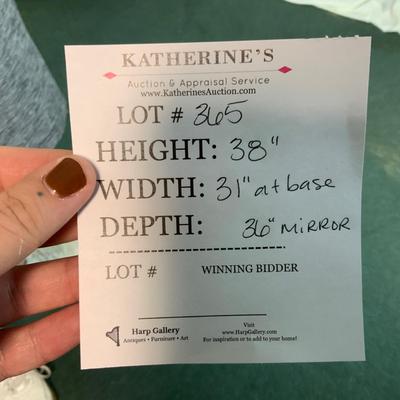 KATHERINE'S
Auction & Appraisal Service
www.KatherinesAuction.com
LOT # 365
HEIGHT: 38"
WIDTH: 31" at base
DEPTH: 36" MIRROR
LOT # WINNING BIDDER
Harp Gallery
Antiques • Furniture • Art
Visit
www.HarpGallery.com
For inspiration or to add to your home!